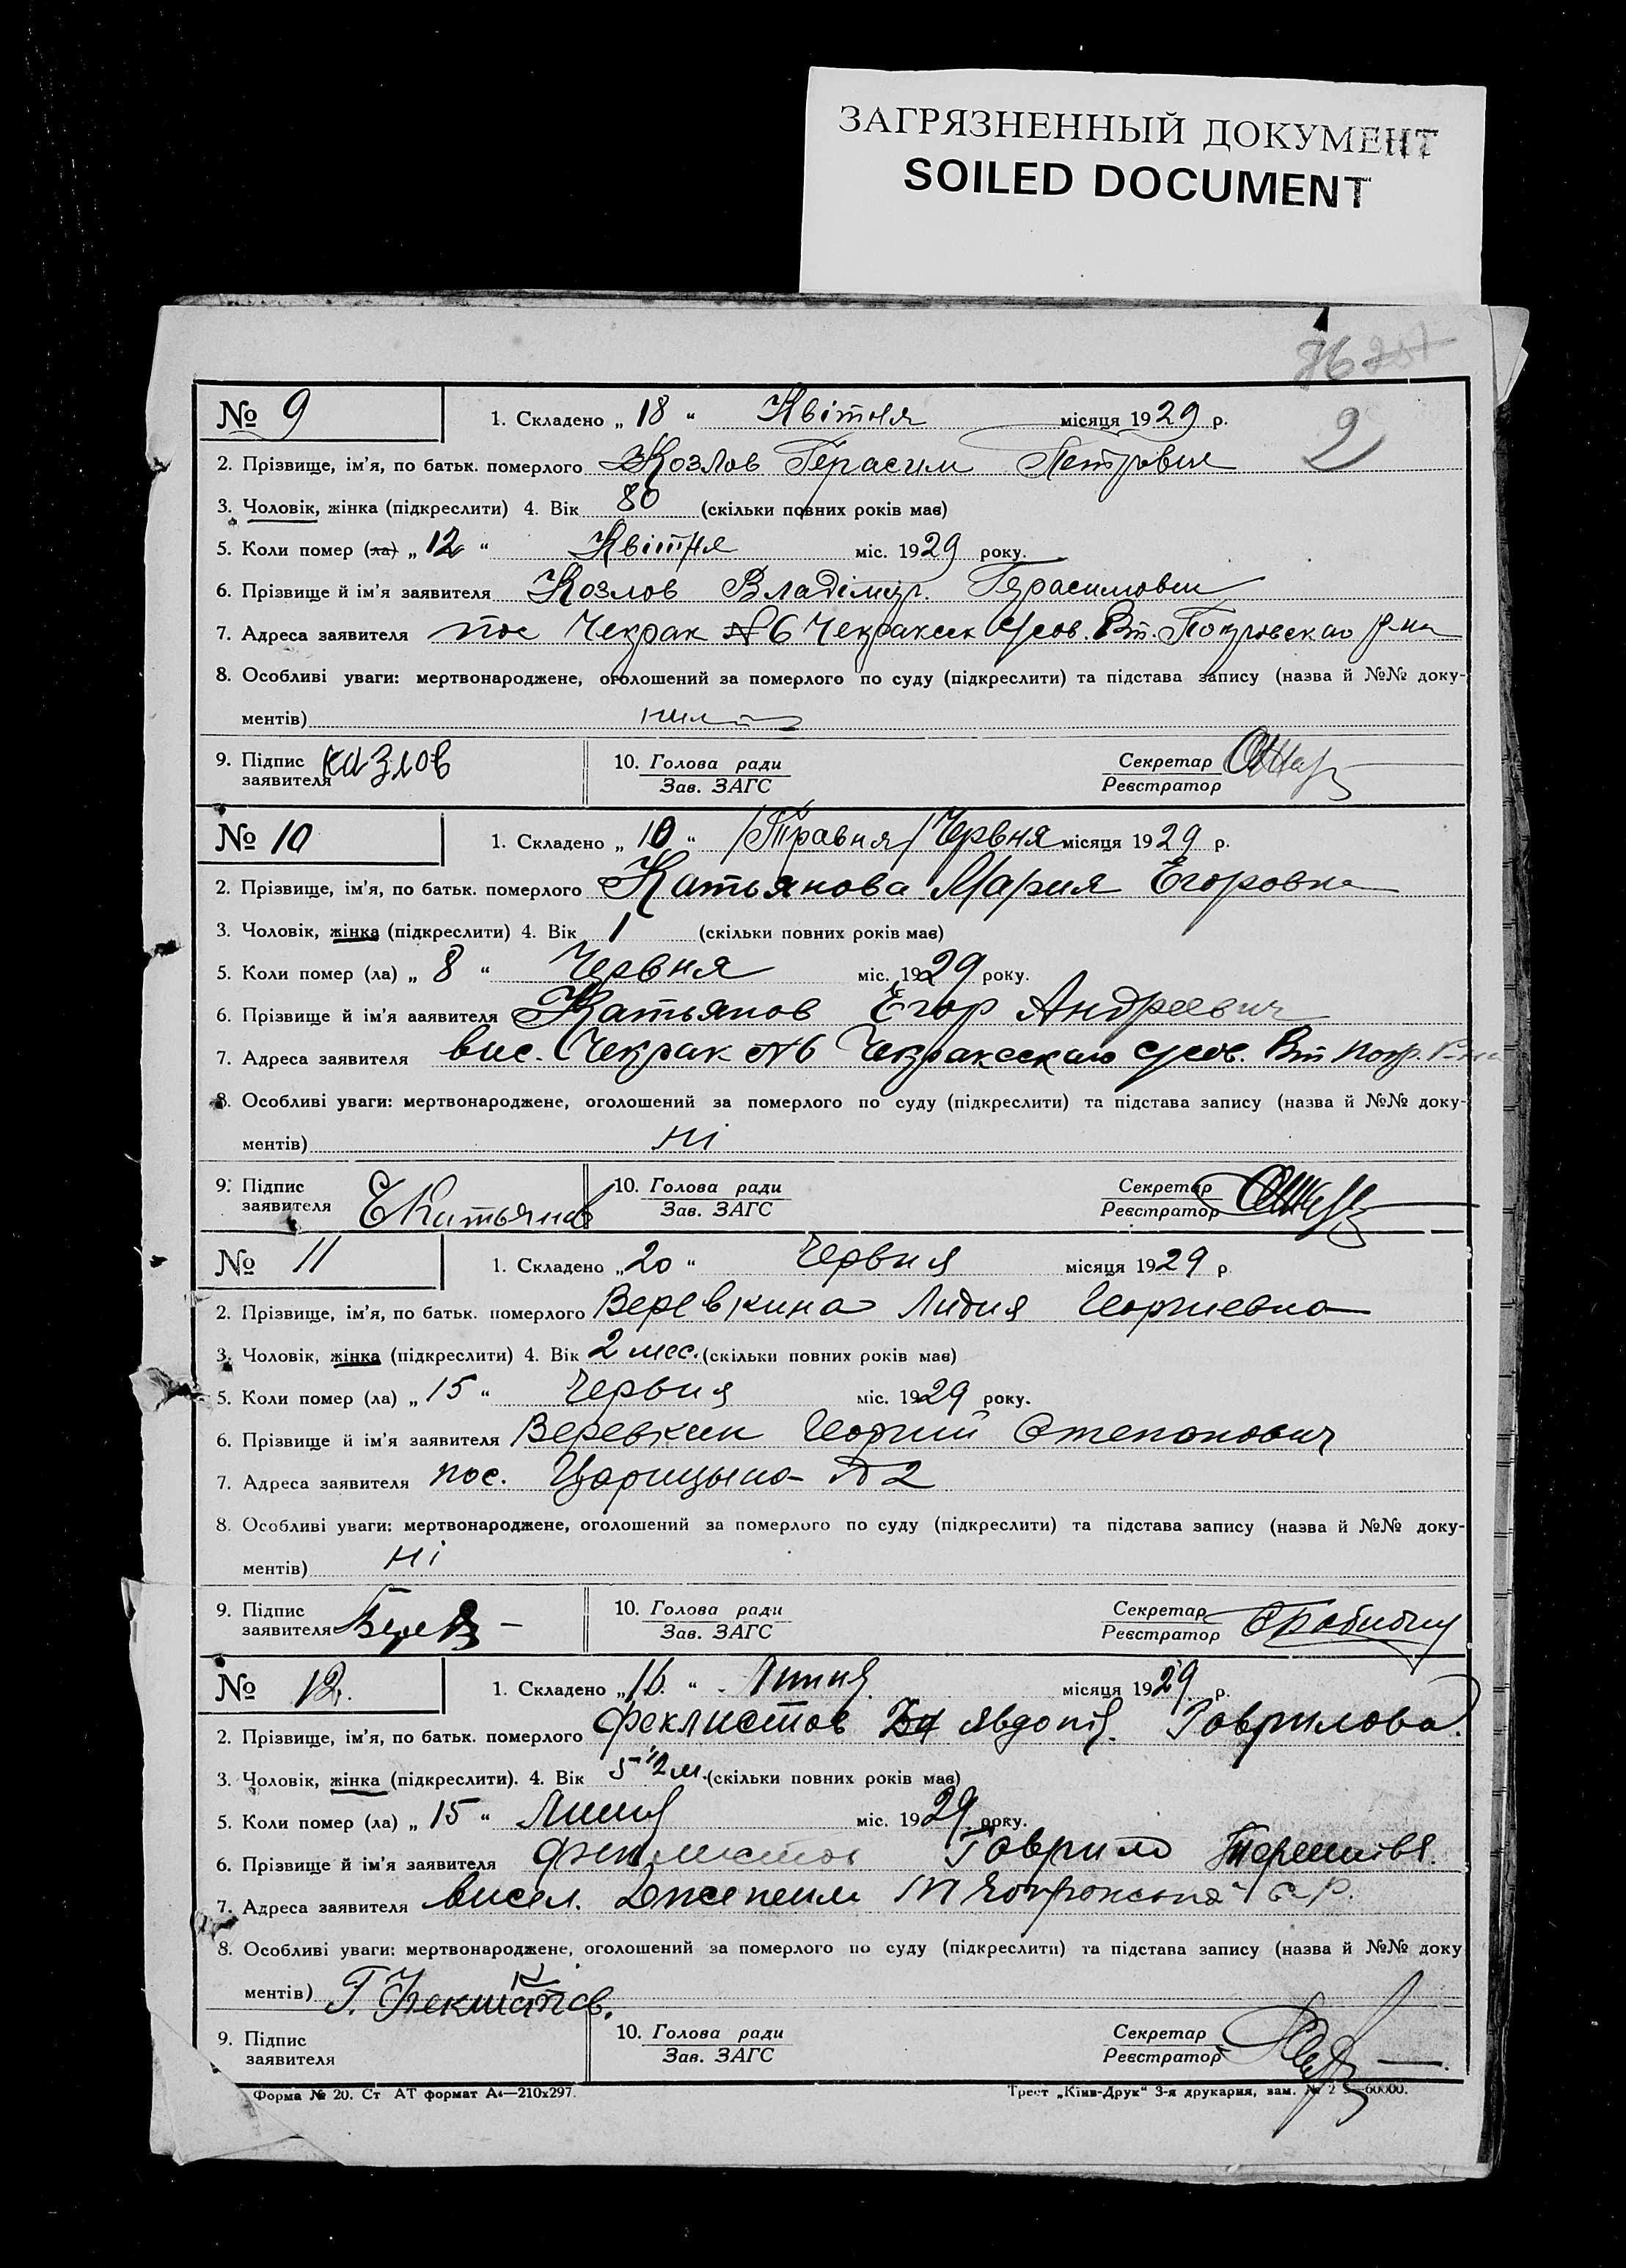 ЗАГРЯЗНЕННЫЙ ДОКУМЕНТ
SOILED DOCUMENT
76
9
№ 9 1. Складено „ 18 “ Квітня місяця 1929 р.
2. Прізвище, ім’я, по батьк. померлого Козлов Герасим Петрович
3. Чоловік, жінка (підкреслити) 4. Вік 80 (скільки повних років має)
5. Коли помер (ла) „ 12 “ Квітня міс. 1929 року.
6. Прізвище й ім’я заявителя Козлов Владімір. Герасимович
7. Адреса заявителя пос Чекрак №6 Чекракск с/сов. Вт. Покровскаго р-на
8. Особливі уваги: мертвонароджене, оголошений за померлого по суду (підкреслити) та підстава запису (назва й №№ доку-
ментів)
9. Підпис 10. Голова ради Секретар
заявителя Казлов Зав. ЗАГС Реєстратор
№ 10 1. Складено „ 10 “ /Травня/ Червня місяця 1929 р.
2. Прізвище, ім’я, по батьк. померлого Катьянова Мария Егоровна
3. Чоловік, жінка (підкреслити) 4. Вік 1 (скільки повних років має)
5. Коли помер (ла) „ 8 “ Червня міс. 1929 року.
6. Прізвище й ім’я заявителя Катьянов Егор Андреевич
7. Адреса заявителя вис. Чекрак №6 Чекракскаго с/сов. Вт Покр. Р-на
8. Особливі уваги: мертвонароджене, оголошений за померлого по суду (підкреслити) та підстава запису (назва й №№ доку-
ментів) ні
9. Підпис 10. Голова ради Секретар
заявителя ЕКатьянов Зав. ЗАГС Реєстратор
№ 11 1. Складено „ 20 “ Червня місяця 1929 р
2. Прізвище, ім’я, по батьк. померлого Веревкина Лидия Георгиевна
3. Чоловік, жінка (підкреслити) 4. Вік 2 мес. (скільки повних років має)
5. Коли помер (ла) „ 15 “ Червня міс. 1929 року.
6. Прізвище й ім’я заявителя Веревкин Георгий Степанович
7. Адреса заявителя пос. Царицыно № 2
8. Особливі уваги: мертвонароджене, оголошений за померлого по суду (підкреслити) та підстава запису (назва й №№ доку-
ментів) ні
9. Підпис 10. Голова ради Секретар
заявителя Зав. ЗАГС Реєстратор
№ 12. 1. Складено „ 16. “ Липня місяця 1929 р.
2. Прізвище, ім’я, по батьк. померлого Феклистов Явдопія. Гаврилова.
3. Чоловік, жінка (підкреслити). 4. Вік 5 1/2 м. (скільки повних років має)
5. Коли помер (ла) „ 15 “ Липня міс. 1929 року.
6. Прізвище й ім’я заявителя Феклистов Гаврило
7. Адреса заявителя висел. с. р.
8. Особливі уваги: мертвонароджене, оголошений за померлого по суду (підкреслити) та підстава запису (назва й №№ доку
ментів) Г.
9. Підпис 10. Голова ради Секретар
заявителя Зав. ЗАГС Реєстратор
Форма № 20. Ст АТ формат А4—210х297. Трест „Київ-Друк“ 3-я друкарня, зам. № 60000.